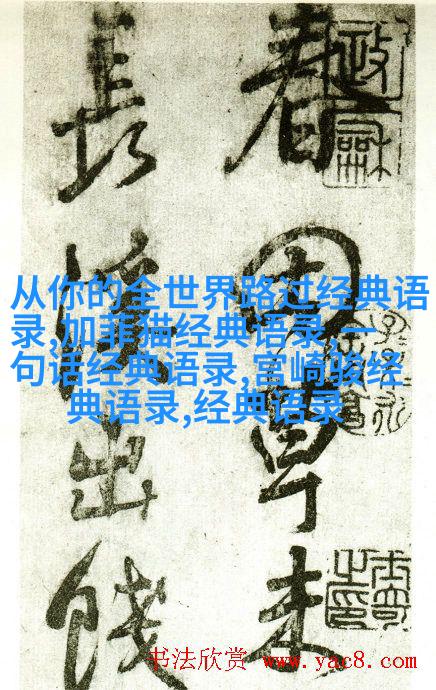 早未
長出
政龢
从你的全世界路过经典语
录,加菲猫经典语录 一
句话经典语录,宫崎骏经
典语录,经典语录
书法欣赏 www.yac8.com